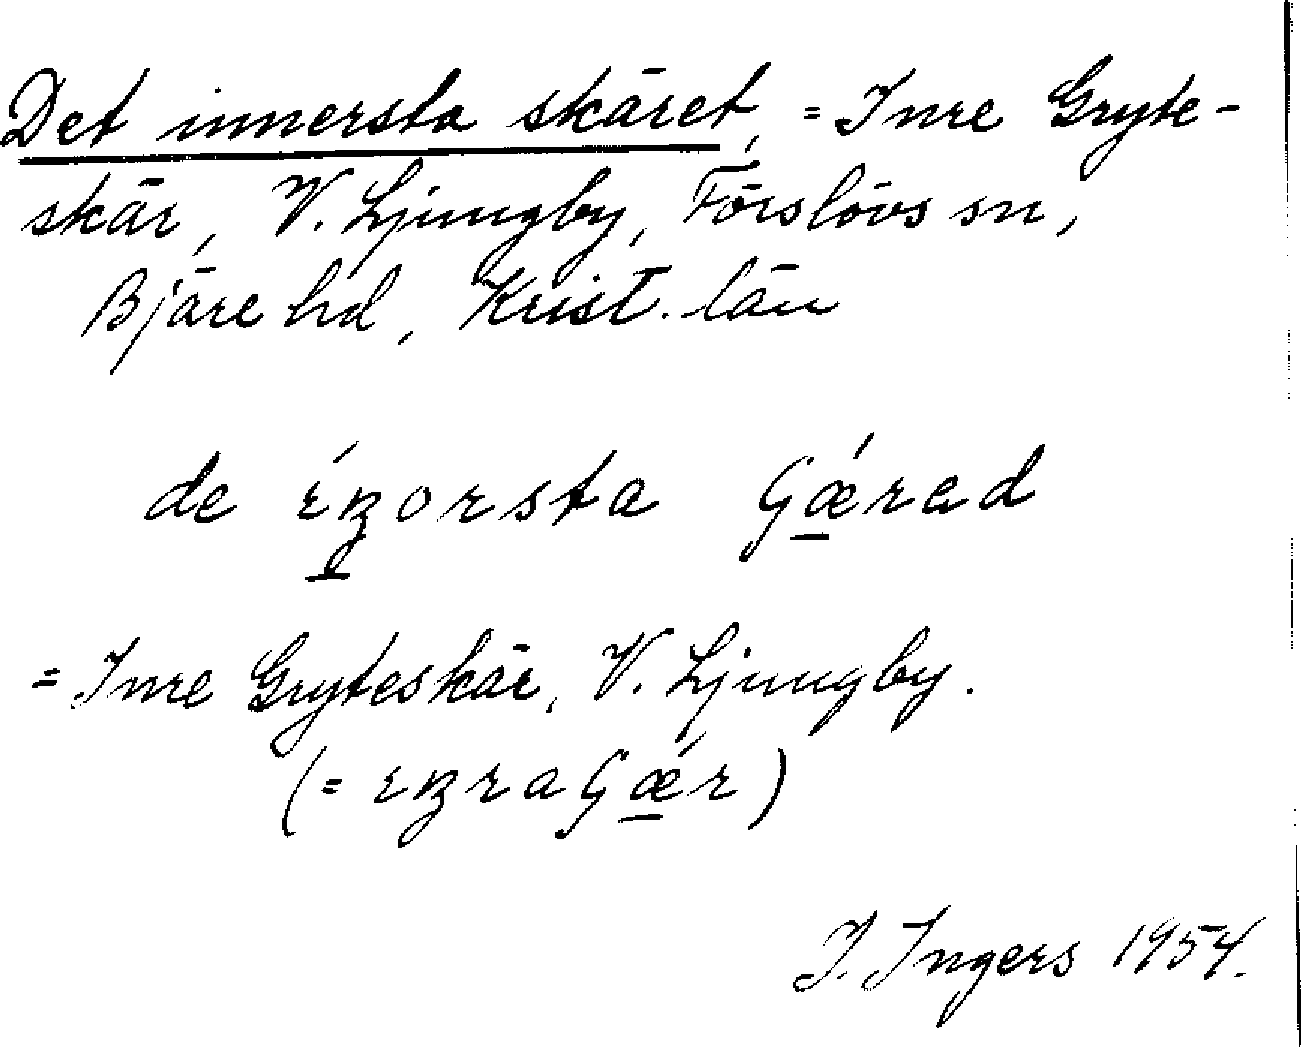 Det innersta skäret, = Inre Gryte-
skär, V. Ljungby, Förslövs sn,
Bjäre hd, Krist. län
de
= Inre Gryteskär, V. Ljungby.
I. Ingers 1954.